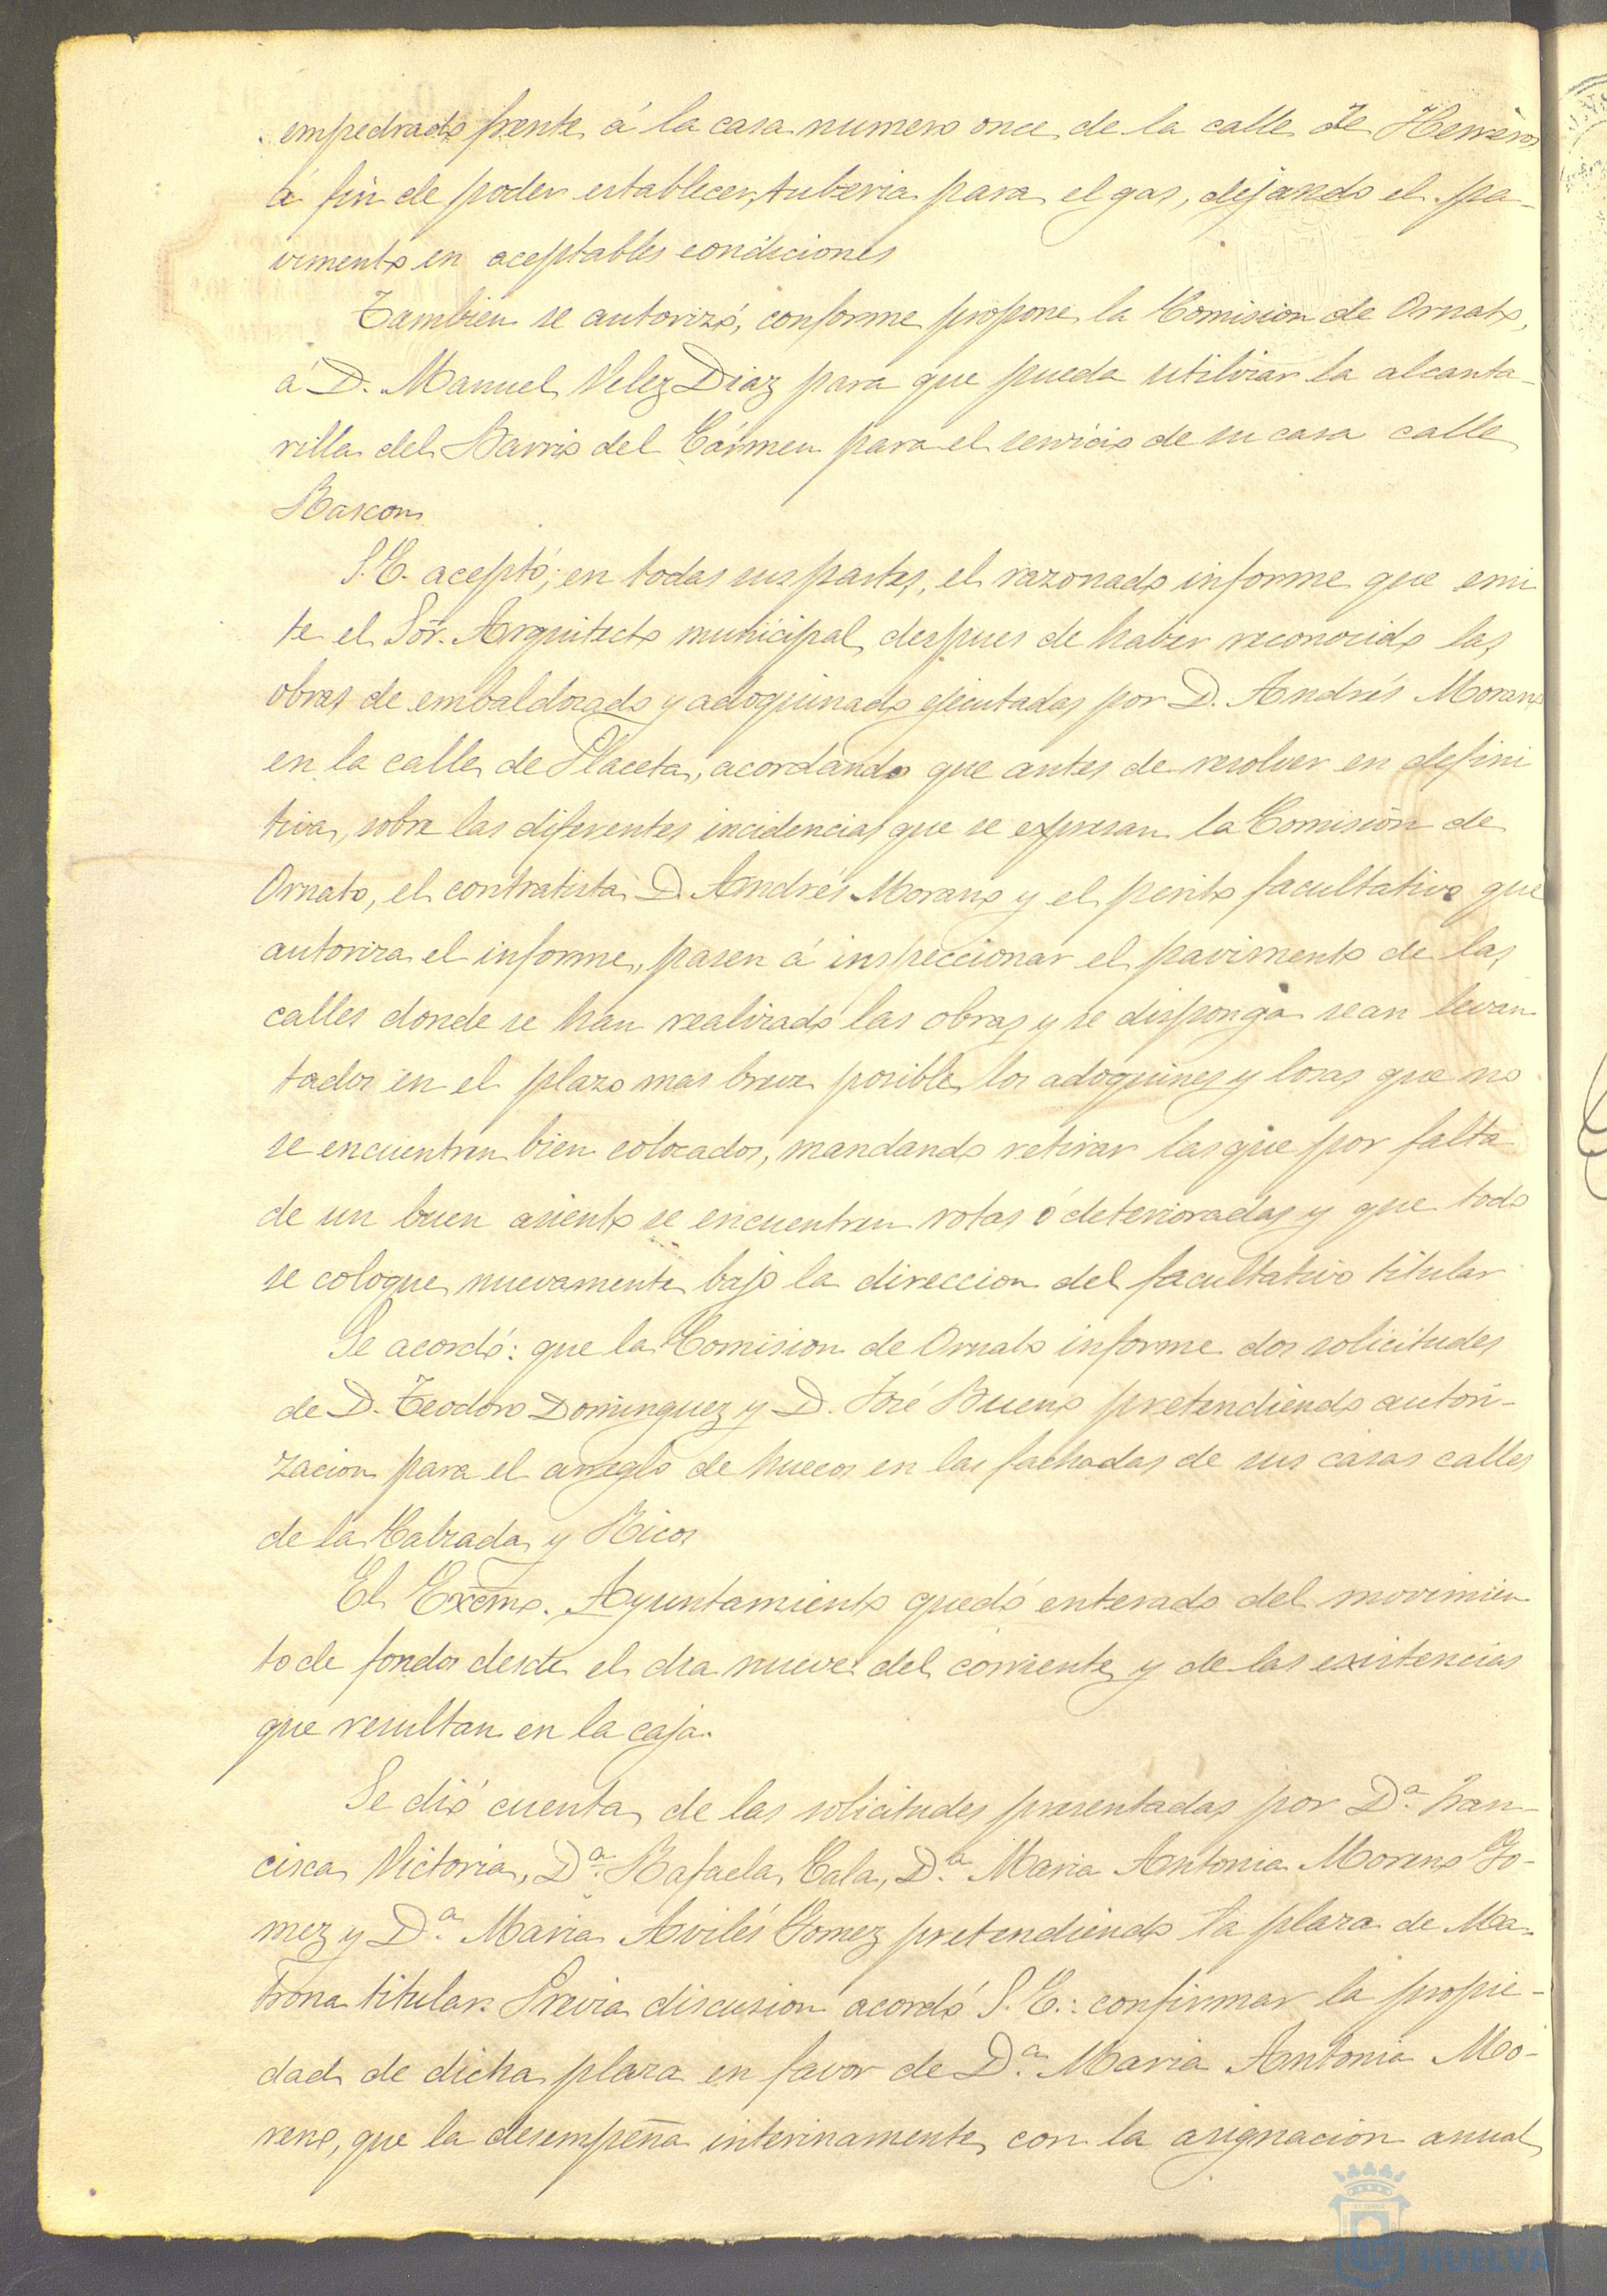 empedrado frente á la casa numero once de la calle de Herreros
á fin de poder establecer tuberia para el gas, dejando el pa-
vimento en aceptables condiciones
Tambien se autorizó, conforme propone la Comision de Ornato,
á D. Manuel Velez Diaz para que pueda utilizar la alcanta-
rilla del Barrio del Cármen para el servicio de su casa calle
Rascon
S. E. aceptó, en todas sus partes, el razonado informe que emi
te el Sor. Arquitecto municipal, despues de haber reconocido las
obras de embaldosado y adoquinado ejecutadas por D. Andrés Morano
en la calle de Placeta, acordando que antes de resolver en defini
tiva, sobre las diferentes incidencias que se expresan la Comisión de
Ornato, el contratista D. Andrés Morano y el perito facultativo que
autoriza el informe, pasen á inspeccionar el pavimento de las
calles donde se han realizado las obras y se disponga sean levan
tados en el plazo mas breve posible, los adoquines y losas que no
se encuentren bien colocados, mandando retirar las que por falta
de un buen asiento se encuentren rotas ó deterioradas y que todo
se coloque nuevamente bajo la direccion del facultativo titular
Se acordó: que la Comision de Ornato informe dos solicitudes
de D. Teodoro Dominguez y D. José Bueno pretendiendo autori-
zacion para el arreglo de huecos en las fachadas de sus casas calles
de la Calzada y Ricos
El Excmo. Ayuntamiento quedó enterado del movimien
to de fondos desde el dia nueve del corriente y de las existencias
que resultan en la caja.
Se dió cuenta de las solicitudes presentadas por Dª. Fran-
cisca Victoria, Dª. Rafaela Cala, Dª. Maria Antonia Moreno Go-
mez y Dª. Maria Avilés Gomez pretendiendo la plaza de Ma-
trona titular. Previa discusion acordó S. E.: confirmar la propie-
dad de dicha plaza en favor de Dª. Maria Antonia Mo-
reno, que la desempeña interinamente, con la asignacion anual
HUELVA